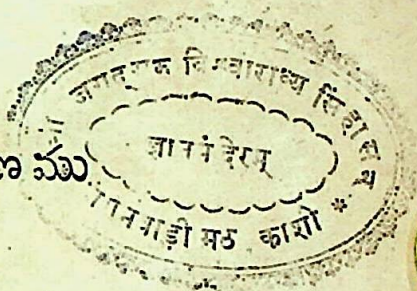 श्री जगद्गुरु विश्वाराध्य सिंहासन
ज्ञानमंदिरम्
जंगमवाड़ी मठ काशी *
ము